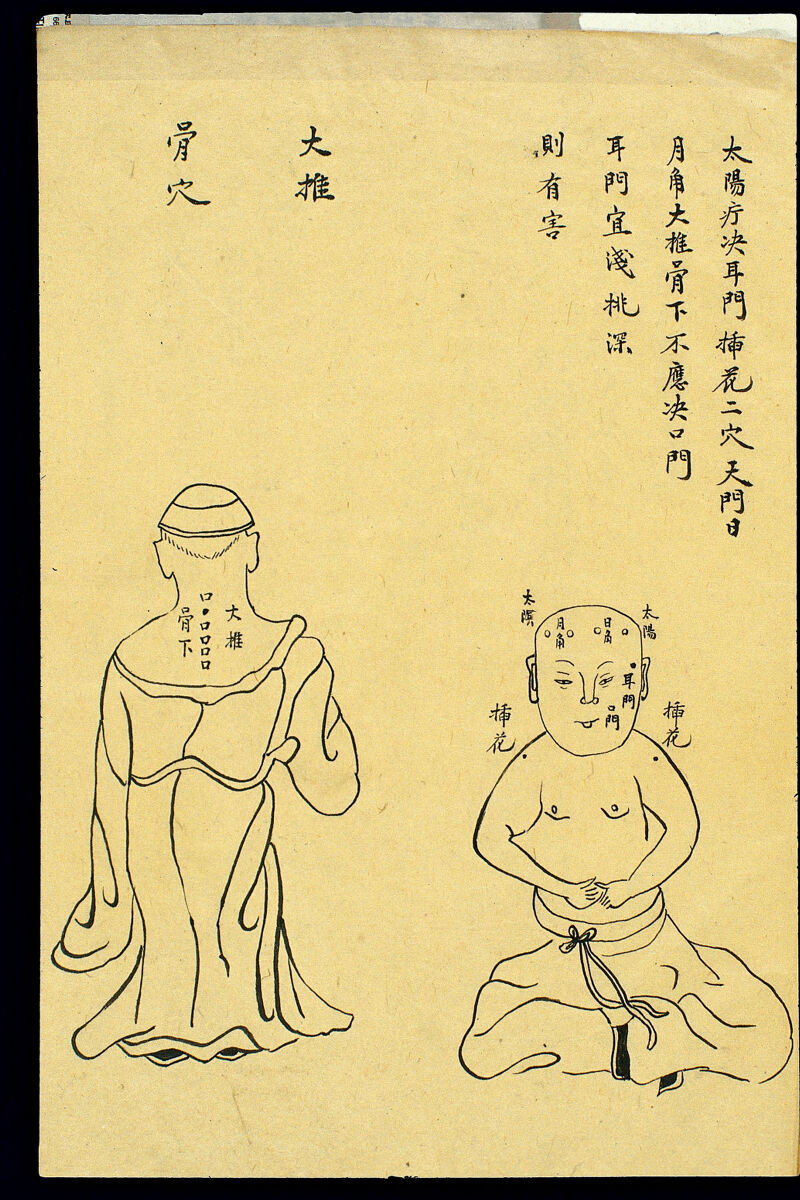 太陽疔决耳門揷花二穴天門日
月角大推骨下不應决口門
耳門宜淺挑深
則有害
大推
骨穴
太陽
日角
月角
太陽
耳門
口門
揷花
揷花
大推
骨下